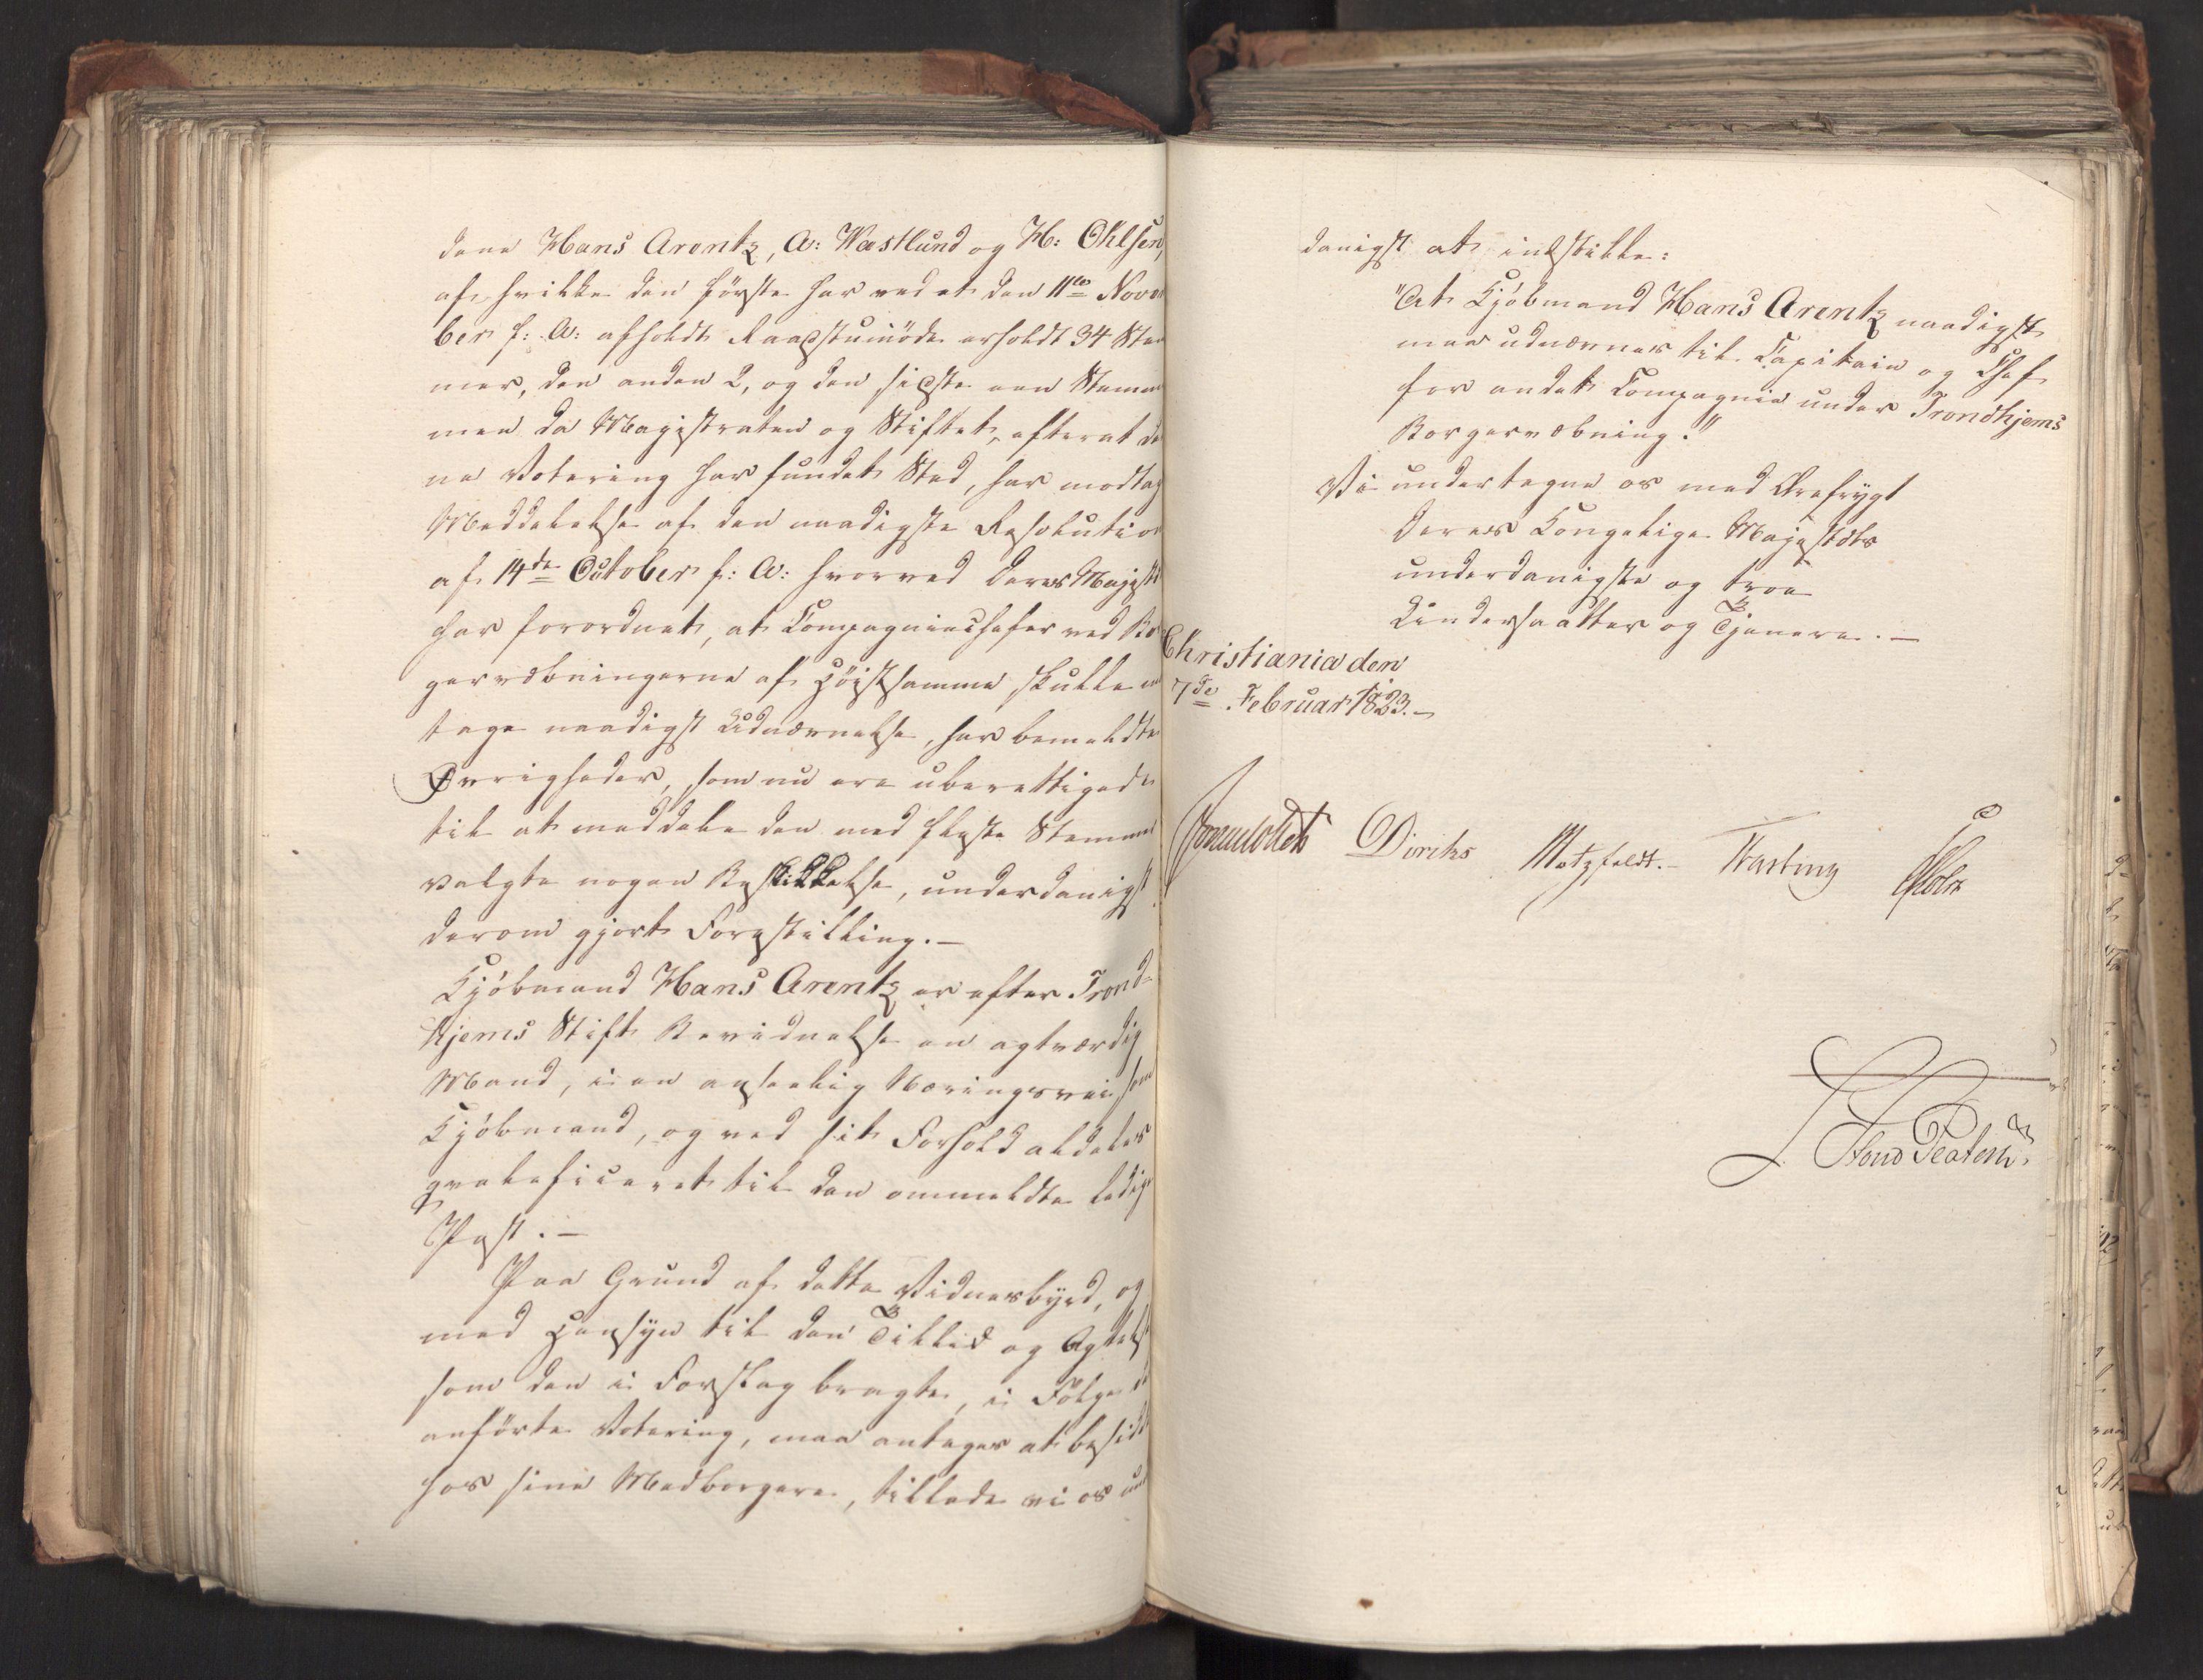 dene Hans Arentz, A: Wæstlund og H: Ohlsen,
af hvilke den første har ved et den 11te Novem
ber f: A: afholdt Raadstuemøde erholdt 34 Stem
mer, den anden 2, og den sidste een Stemme
men da Magistraten og Stiftet, efterat den
ne Votering har fundet Sted, har modtag
Meddelelse af den naadigste Resolution
af 14de October f: A: hvorved Deres Majestæt
har forordnet, at Compagniechefer ved Bor
gervæbningerne af Høistsamme skulle mod
tage naadigst Udnævnelse, har bemeldte
Øvrigheder, som nu ere uberettigede
til at meddele den med fleste Stemmer
valgte nogen Beskikkelse, underdanigst
derom gjort Forestilling.—
Kjøbmand Hans Arentz er efter Trond-
hjems Stifts Bevidnelse en agtværdig
Mand, i en anseelig Næringsvei som
Kjøbmand, og ved sit Forhold aldeles
qvalificeret til den ommeldte ledige
Post.—
Paa Grund af dette Vidnesbyrd, og
med Hensyn til den Tillid og Agtelse
som den i Forslag bragte, i Følge den
anførte Votering, maa antages at besidde
hos sine Medborgere, tillade vi os un
danigst at indstille:
"At Kjøbmand Hans Arentz naadigst
maa udnævnes til Capitain og Chef
for andet Compagnie under Trondhjems
Borgervæbning."
Vi undertegne os med Ærefrygt
Deres Kongelige Majestæts
underdanigste og troe
Undersaatter og Tjenere.—
Christiania den
7de Februar 1823.—
Diriks Motzfeldt.- Fasting Holst